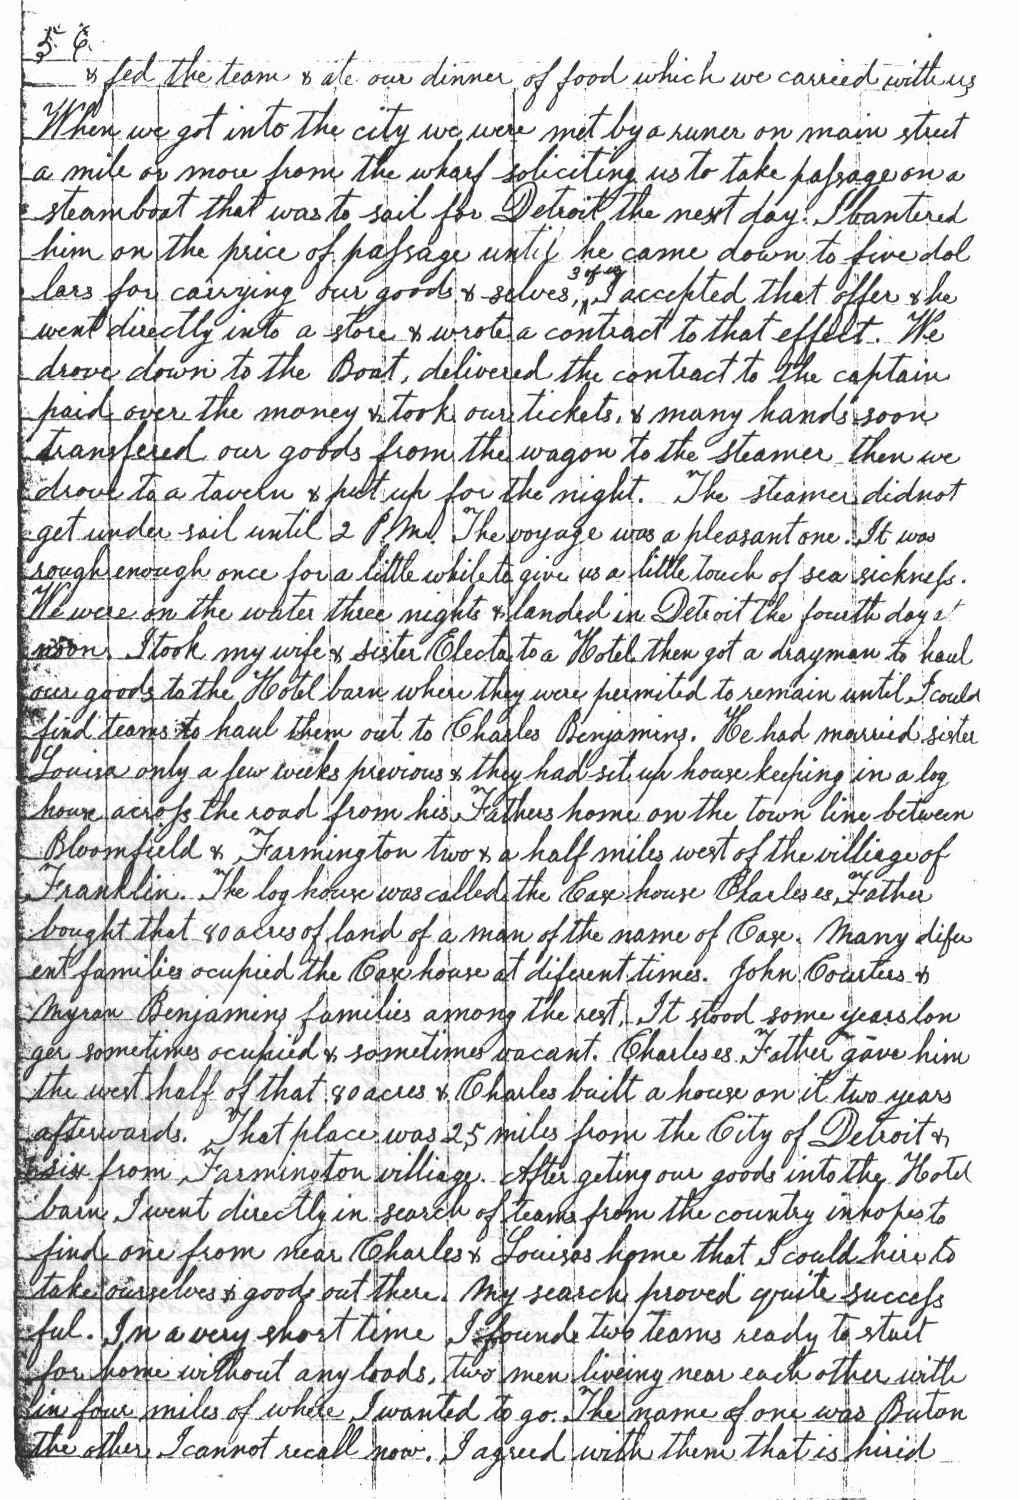 56.
& fed the team & ate our dinner of food which we carried with us
When we got into the city we were met by a runer on main street
a mile or more from the wharf soliciting us to take passage on a
steamboat that was to sail for Detroit the next day. I bantered
him on the price of passage until he came down to five dol
lars for carrying our goods & selves, 3 of us I accepted that offer & he
went directly into a store & wrote a contract to that effect. We
drove down to the Boat, delivered the contract to the captain
paid over the money & took our tickets, & many hands soon
transfered our goods from the wagon to the steamer then we
drove to a tavern & put up for the night. The steamer did not
get under sail until 2 P.M. The voyage was a pleasant one. It was
rough enough once for a little while to give us a little touch of sea sickness.
We were on the water three nights & landed in Detroit the fourth day at
noon. I took my wife & sister Electa to a Hotel then got a drayman to haul
our goods to the Hotel barn where they were permited to remain until I could
find teams to haul them out to Charles Benjamins. He had married sister
Louisa only a few weeks previous & they had set up house keeping in a log
house across the road from his Fathers home on the town line between
Bloomfield & Farmington two & a half miles west of the villiage of
Franklin. The log house was called the Case house Charleses Father
bought that 80 acres of land of a man of the name of Case. Many difer
ent families ocupied the Case house at diferent times. John Courters &
Myran Benjamins families among the rest. It stood some years lon
ger sometimes ocupied & sometimes vacant. Charleses Father gave him
the west half of that 80 acres & Charles built a house on it two years
afterwards. That place was 25 miles from the City of Detroit &
six from Farmington villiage. After geting our goods into the Hotel
barn I went directly in search of teams from the country in hopes to
find one from near Charles & Louisas home that I could hire to
take ourselves & goods out there. My search proved quite success
ful. In a very short time I found two teams ready to start
for home without any loads, two men liveing near each other with
in four miles of where I wanted to go. The name of one was Buton
the other I cannot recall now. I agreed with them that is hired